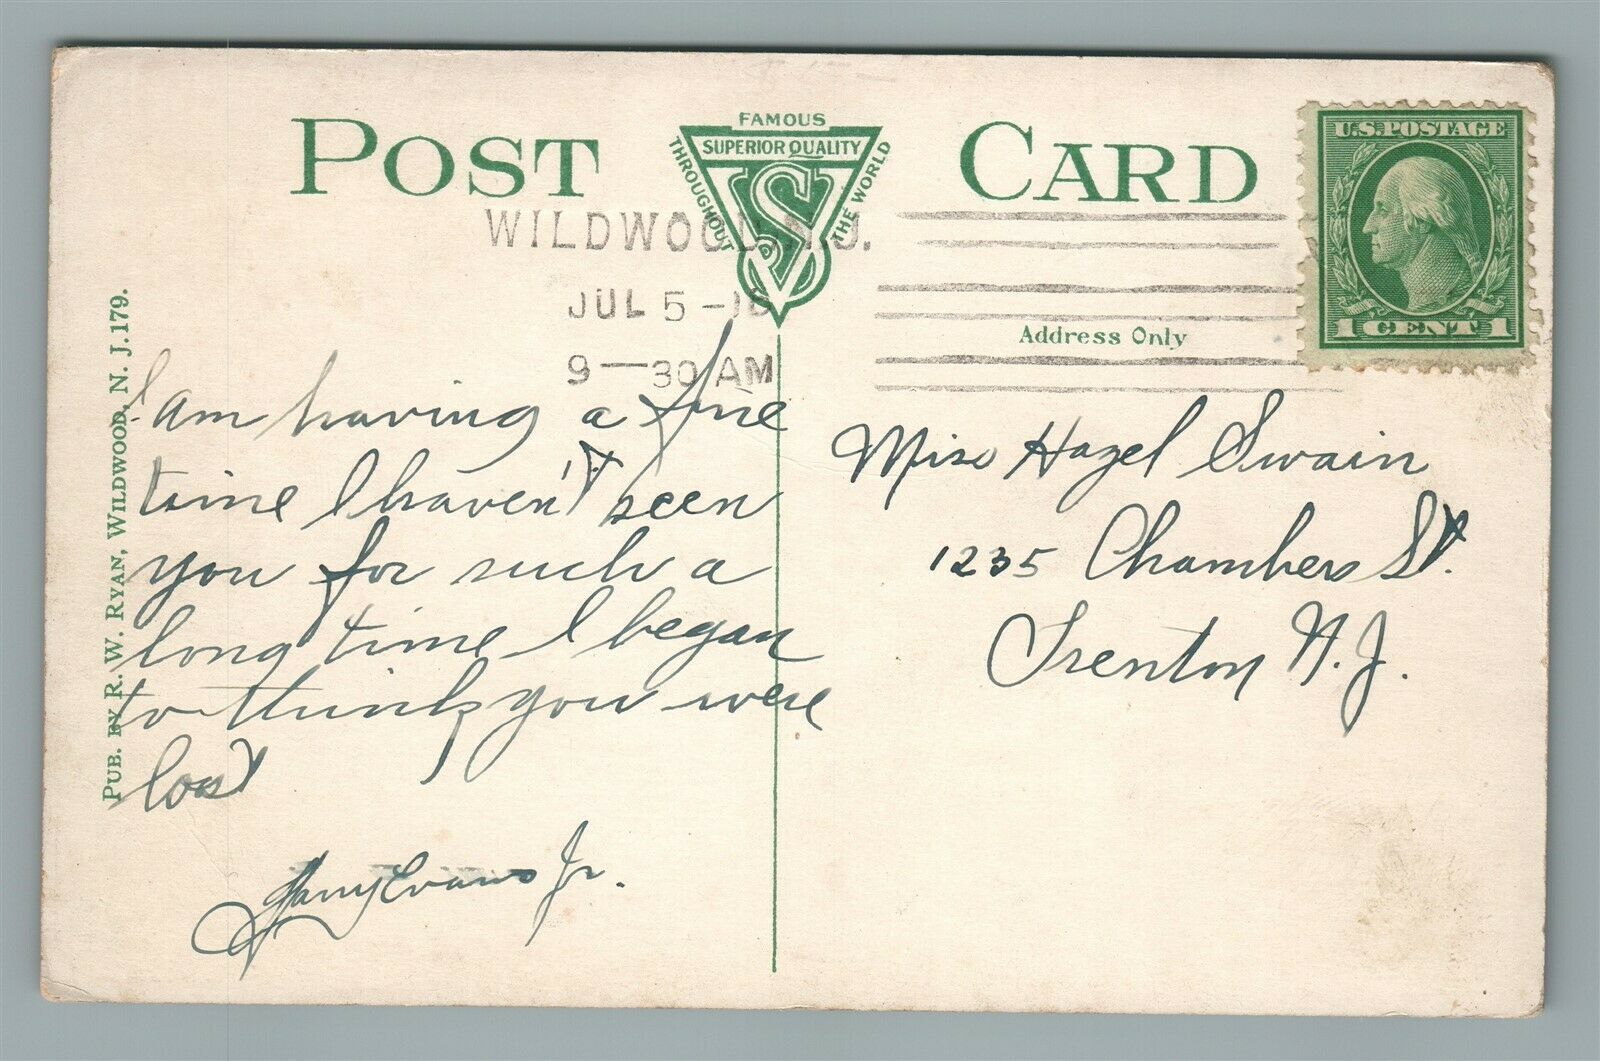 POST CARD
FAMOUS
SUPERIOR QUALITY
THROUGHOUT
THE WORLD
SV
WILDWOOD, N.J.
JUL 5 - 16
9 — 30 AM
U.S. POSTAGE
1 CENT 1
Address Only
PUB. BY R. W. RYAN, WILDWOOD, N. J. 179.
I am having a fine
time I haven't seen
you for such a
long time I began
to think you were
lost
Harry Evans Jr.
Miss Hazel Swain
1235 Chambers St.
Trenton N.J.